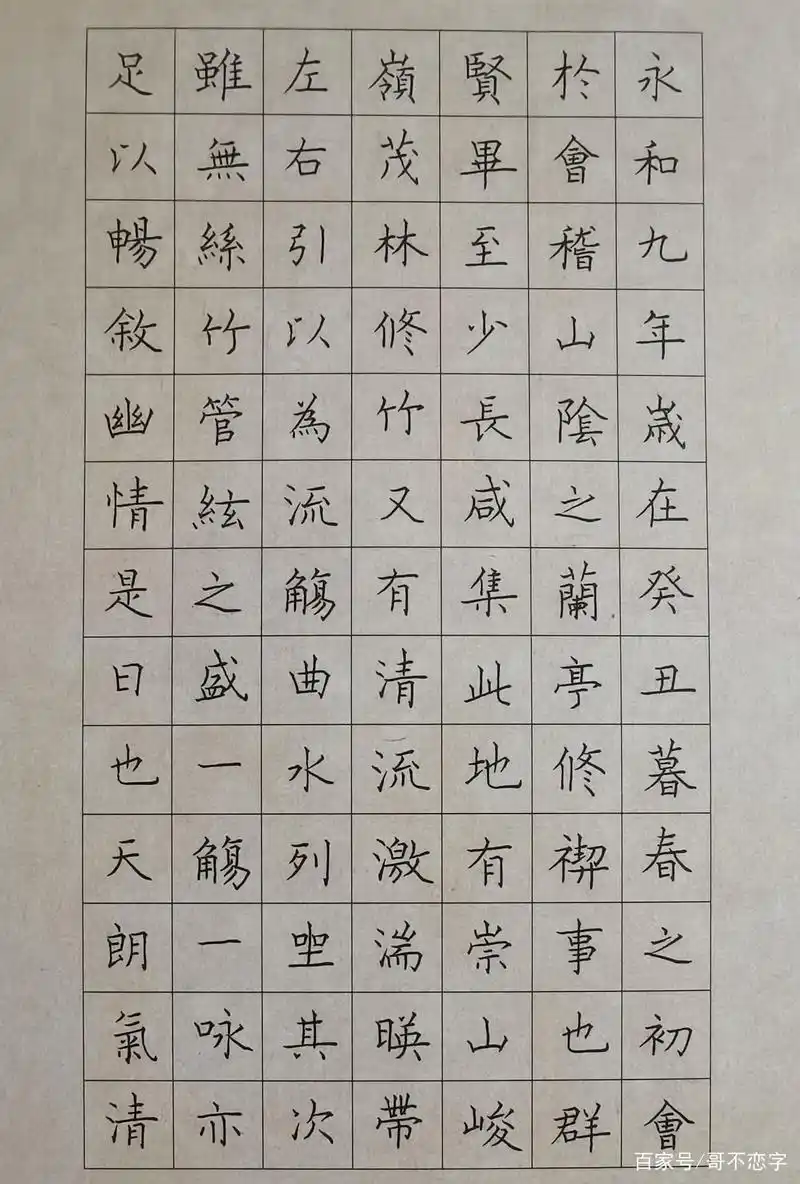 永和九年歲在癸丑暮春之初會
於會稽山陰之蘭亭修禊事也群
賢畢至少長咸集此地有崇山峻
嶺茂林修竹又有清流激湍暎帶
左右引以為流觴曲水列坐其次
雖無絲竹管絃之盛一觴一咏亦
足以暢敘幽情是日也天朗氣清
百家号/哥不恋字